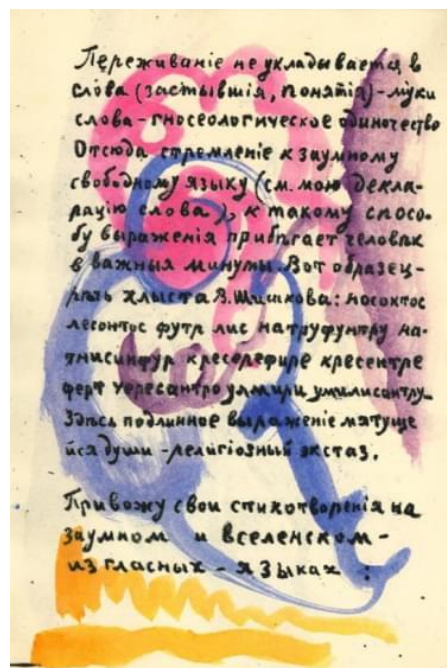 Переживаніе не укладывается в
слова (застывшія, понятія) - муки
слова - гносеологическое одиночество
Отсюда стремленіе к заумному
свободному языку (см. мою декла-
рацію слова), к такому спосо-
бу выраженія прибѣгает человѣк
в важныя минуты. Вот образец -
рѣчь хлыста В. Шишкова: носоктос
лесонтос футр лис натруфунтру на-
тнисинфур кресерефире кресентре
ферт чересантро улмири умилисонтру
Здѣсь подлинное выраженіе мятуще
йся души - религіозный экстаз.
Привожу свои стихотворенія на
заумном и вселенском -
из гласных - языках :